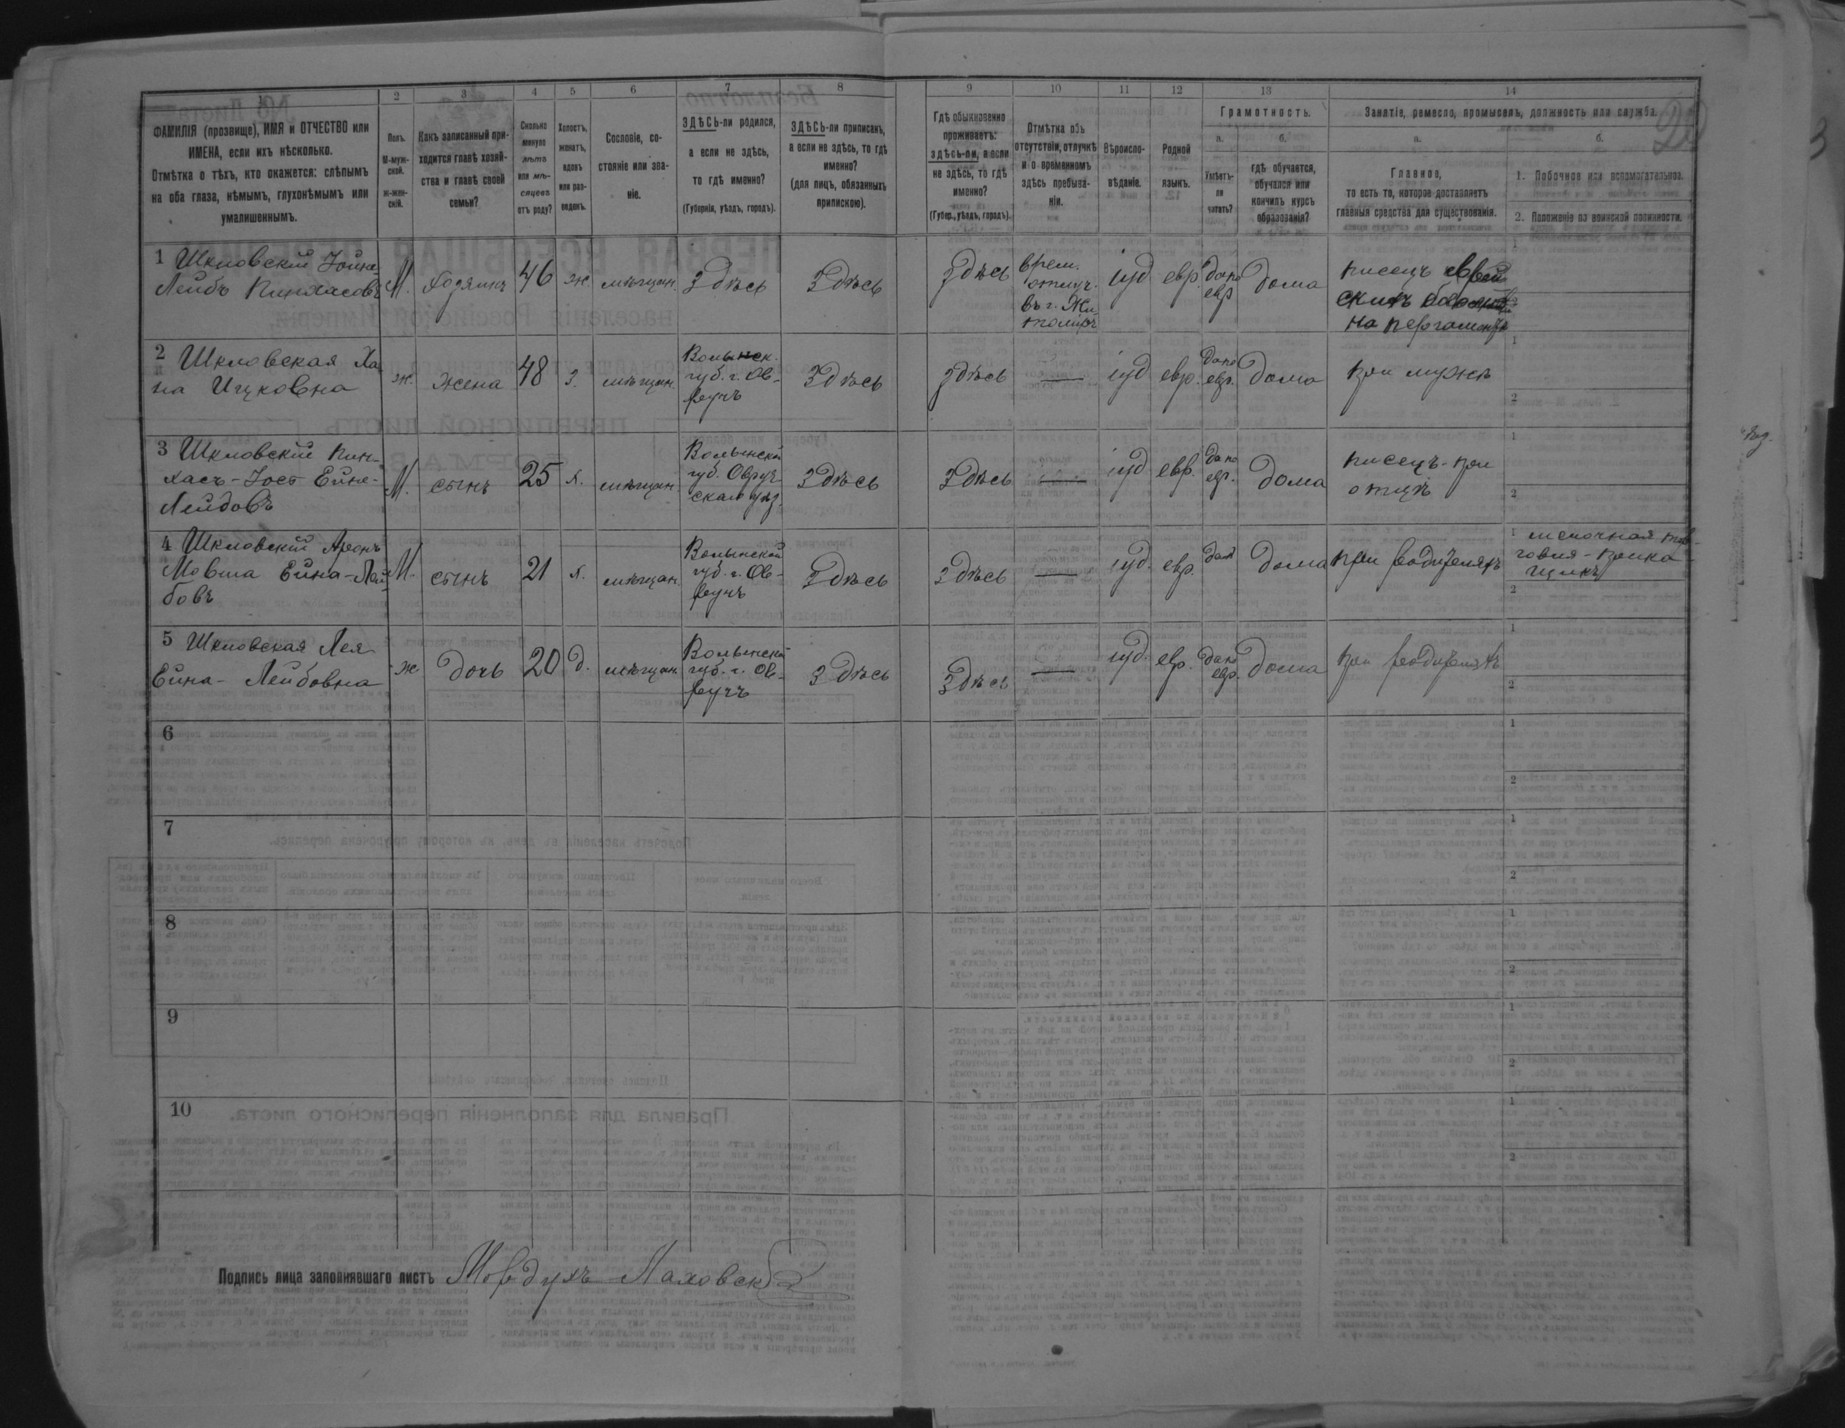 1 2 3 4 5 6 7 8 9 10 11 12 13 14
ФАМИЛІЯ (прозвище), ИМЯ и ОТЧЕСТВО или
ИМЕНА, если ихъ нѣсколько.
Отмѣтка о тѣхъ, кто окажется: слѣпымъ
на оба глаза, нѣмымъ, глухонѣмымъ или
умалишеннымъ.
Полъ.
М-муж-
ской.
Ж-жен-
скій.
Какъ записанный при-
ходится главѣ хозяй-
ства и главѣ своей
семьи?
Сколько
минуло
лѣтъ
или мѣ-
сяцевъ
отъ роду?
Холостъ,
женатъ,
вдовъ
или раз-
веденъ.
Сословіе, со-
стояніе или зва-
ніе.
ЗДѢСЬ-ли родился,
а если не здѣсь,
то гдѣ именно?
(Губернія, уѣздъ, городъ).
ЗДѢСЬ-ли приписанъ,
а если не здѣсь, то гдѣ
именно?
(для лицъ, обязанныхъ
припискою).
Гдѣ обыкновенно
проживаетъ:
здѣсь-ли, а если
не здѣсь, то гдѣ
именно?
(Губер., уѣздъ, городъ).
Отмѣтка объ
отсутствіи, отлучкѣ
и о временномъ
здѣсь пребыва-
ніи.
Вѣроиспо-
вѣданіе.
Родной
языкъ.
Грамотность.
а.
Умѣетъ-
ли
читать?
б.
гдѣ обучается,
обучался или
кончилъ курсъ
образованія?
Занятіе, ремесло, промыселъ, должность или служба.
а.
Главное,
то есть то, которое доставляетъ
главныя средства для существованія.
б.
1. Побочное или вспомогательное.
2. Положеніе по воинской повинности.
1 Шкловскій Іойна-
Лейбъ Пинхасовъ
М. хозяинъ 46 ж. мѣщан. Здѣсь Здѣсь
Здѣсь
врем.
отлуч.
въ г. Жи-
томиръ
іуд. евр.
да по
евр.
дома
писецъ еврей
скихъ
на пергаментѣ
2 Шкловская Ха
на Ицковна
ж. жена 48 з. мѣщан.
Волынск.
губ. г. Ов-
ручъ
Здѣсь
Здѣсь — іуд. евр.
да по
евр.
дома при мужѣ
3 Шкловскій Пин-
хасъ-Іосъ Ейне-
Лейбовъ
М. сынъ 25 х. мѣщан.
Волынской
губ. Овруч-
скаго уѣз.
Здѣсь
Здѣсь — іуд. евр.
да по
евр.
дома
писецъ-при
отцѣ
4 Шкловскій Аронъ
Мовша Ейна-Лей
бовъ
М. сынъ 21 х. мѣщан.
Волынской
губ. г. Ов-
ручъ
Здѣсь
Здѣсь — іуд. евр.
да
дома при родителяхъ
мелочная тор-
говля-прика-
щикъ
5 Шкловская Лея
Ейна-Лейбовна
ж дочь 20 д. мѣщан.
Волынской
губ. г. Ов-
ручъ
Здѣсь
Здѣсь — іуд. евр.
да по
евр.
дома при родителяхъ
6
7
8
9
10
Подпись лица заполнявшаго листъ Мордухъ Маховск